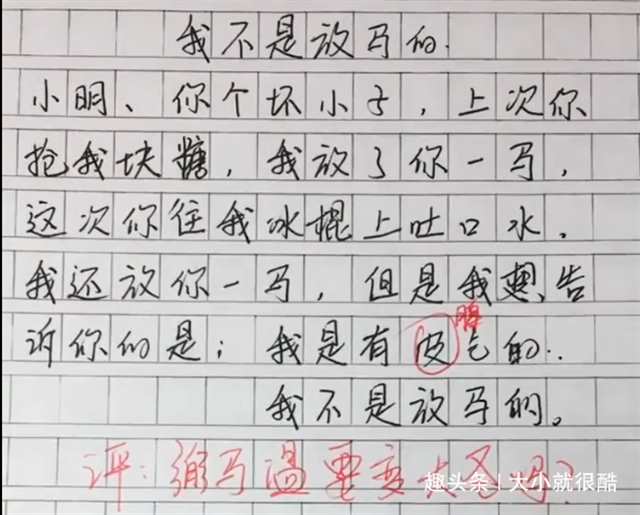 我不是放马的.
小明、你个坏小子，上次你
抢我块糖，我放了你一马，
这次你往我冰棍上吐口水，
我还放你一马，但是我想告
诉你的是；我是有皮气的..
脾
我不是放马的。
评：弼马温要变大圣吗？
趣头条 | 大小就很酷